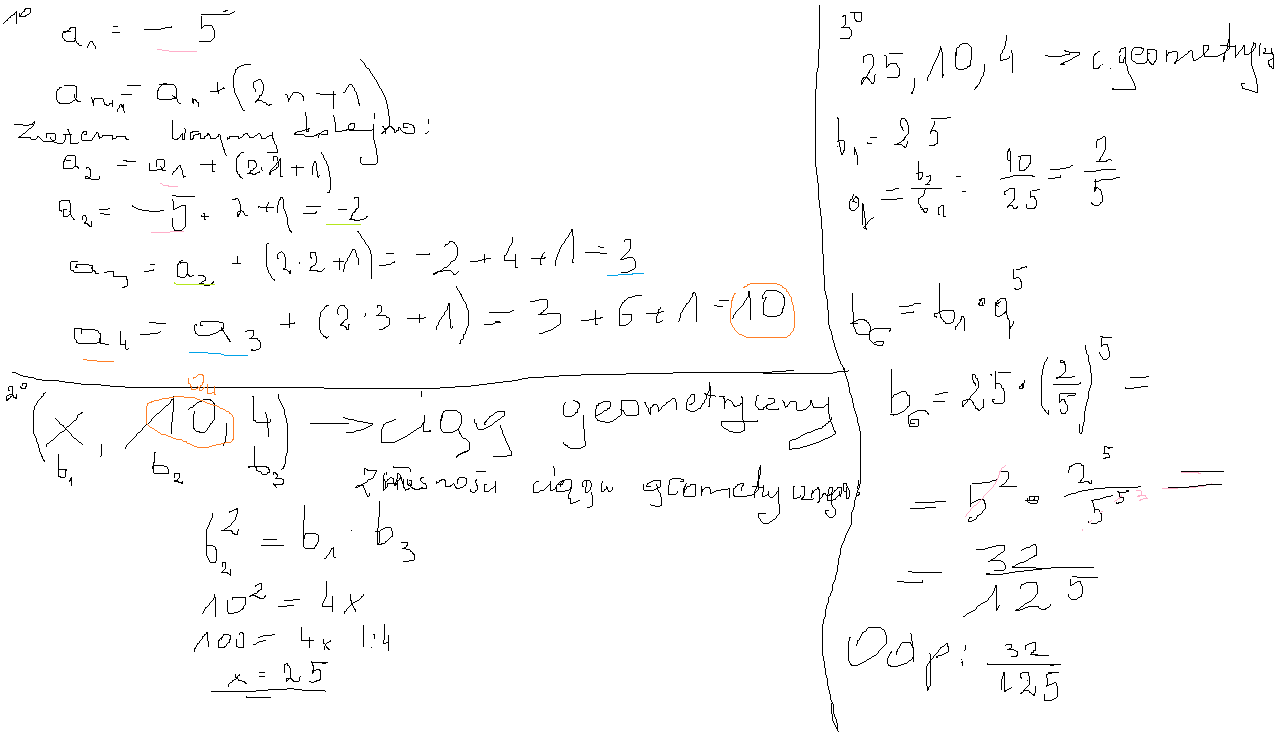 1°
a₁ = -5
aₙ₊₁ = aₙ + (2n+1)
Zatem liczymy kolejno:
a₂ = a₁ + (2·1+1)
a₂ = -5 + 2+1 = -2
a₃ = a₂ + (2·2+1) = -2+4+1 = 3
a₄ = a₃ + (2·3+1) = 3+6+1 = 10
2°
a₄
(x, 10, 4) → ciąg geometryczny
b₁ b₂ b₃
Z własności ciągu geometrycznego:
b₂² = b₁ · b₃
10² = 4x
100 = 4x |:4
x = 25
3°
25, 10, 4 → c. geometryczny
b₁ = 25
q = b₂/b₁ = 10/25 = 2/5
b₆ = b₁ · q⁵
b₆ = 25 · (2/5)⁵ =
= 5² · 2⁵/5⁵ ³ =
= 32/125
Odp: 32/125